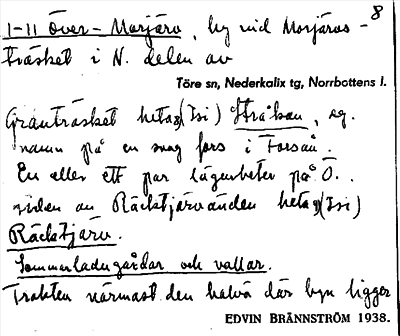 8
1-11 Över-Morjärv, by vid Morjärvs-
träsket i N. delen av
Töre sn, Nederkalix tg, Norrbottens l.
Granträsket hetag (Isi) Stråkan, eg.
namn på en svag fors i Forsån.
En eller ett par lägenheter på Ö.
sidan av Räcktjärvänden hetag (Isi)
Räcktjärv.
Sommarladugårdar och vallar.
Trakten närmast den halvö där byn ligger
EDVIN BRÄNNSTRÖM 1938.